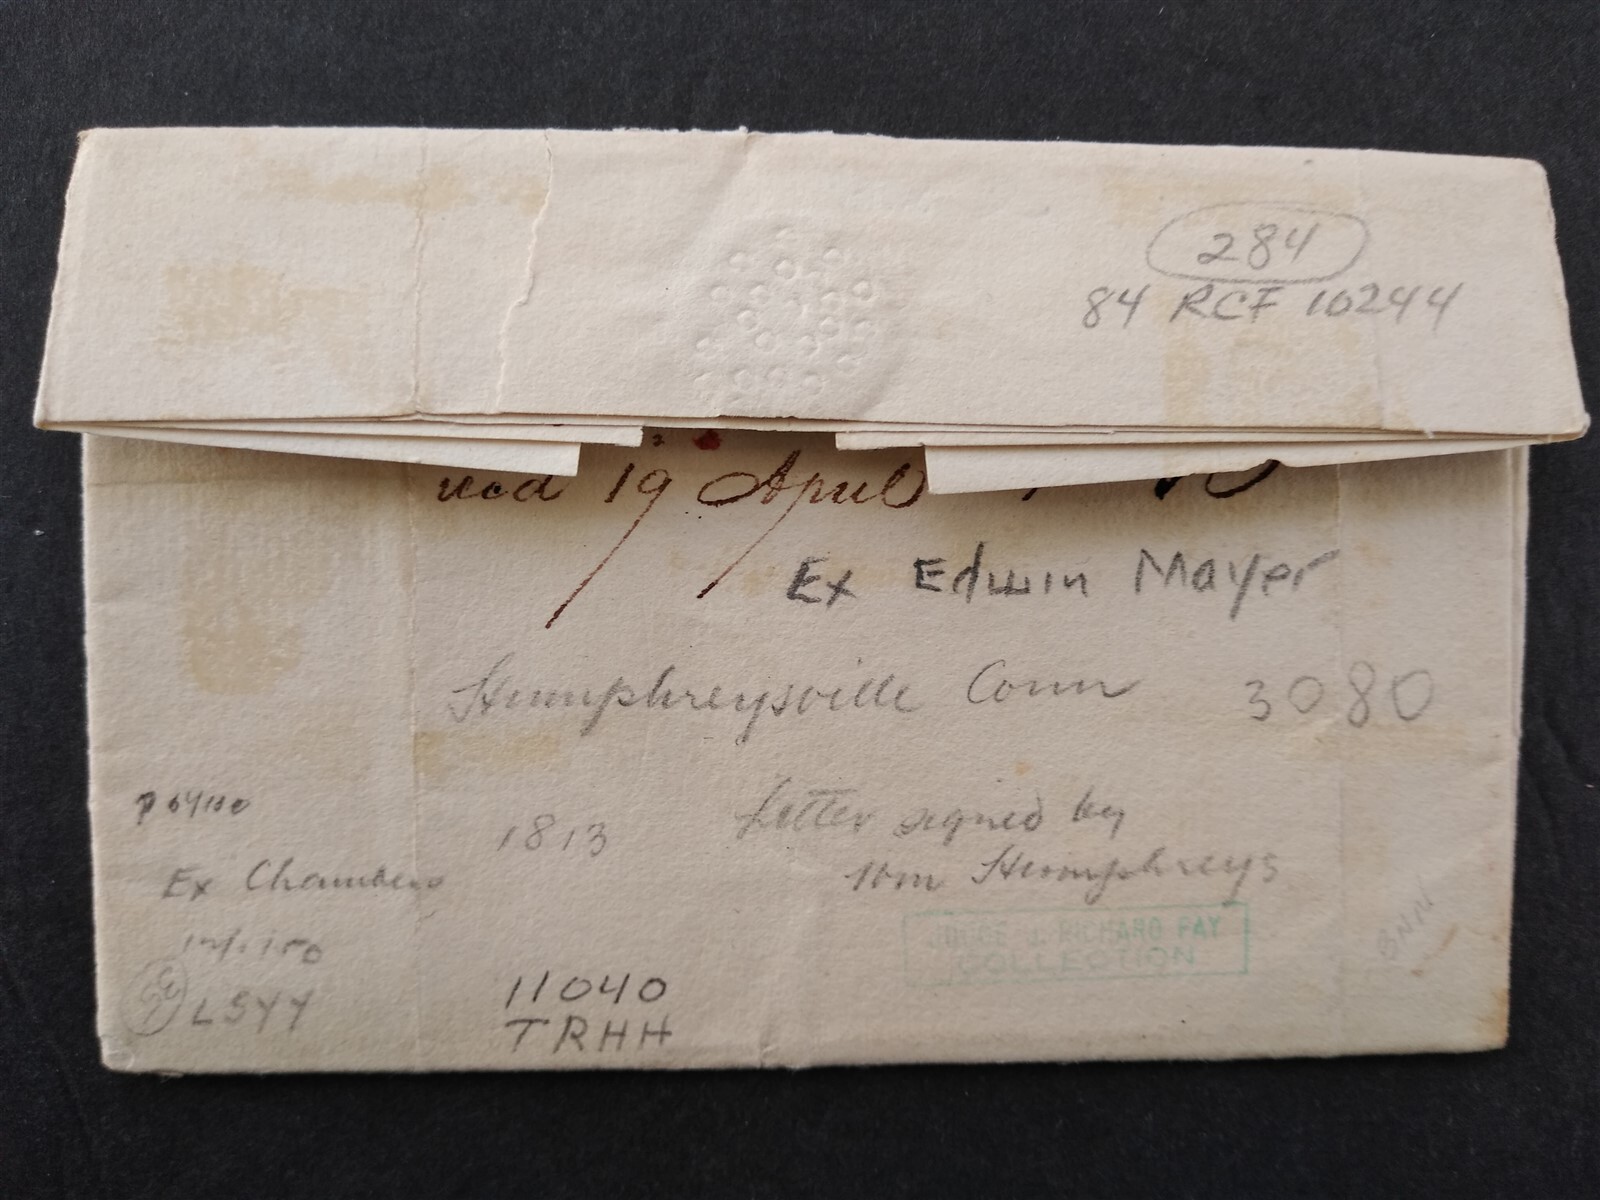 284
84 RCF 10244
recd 19 April
Ex Edwin Mayer
Humphreysville Conn 3080
1813
Letter signed by
Wm Humphreys
Ex Chambers
JUDGE J. RICHARD FAY
COLLECTION
LSYY
11040
TRHH